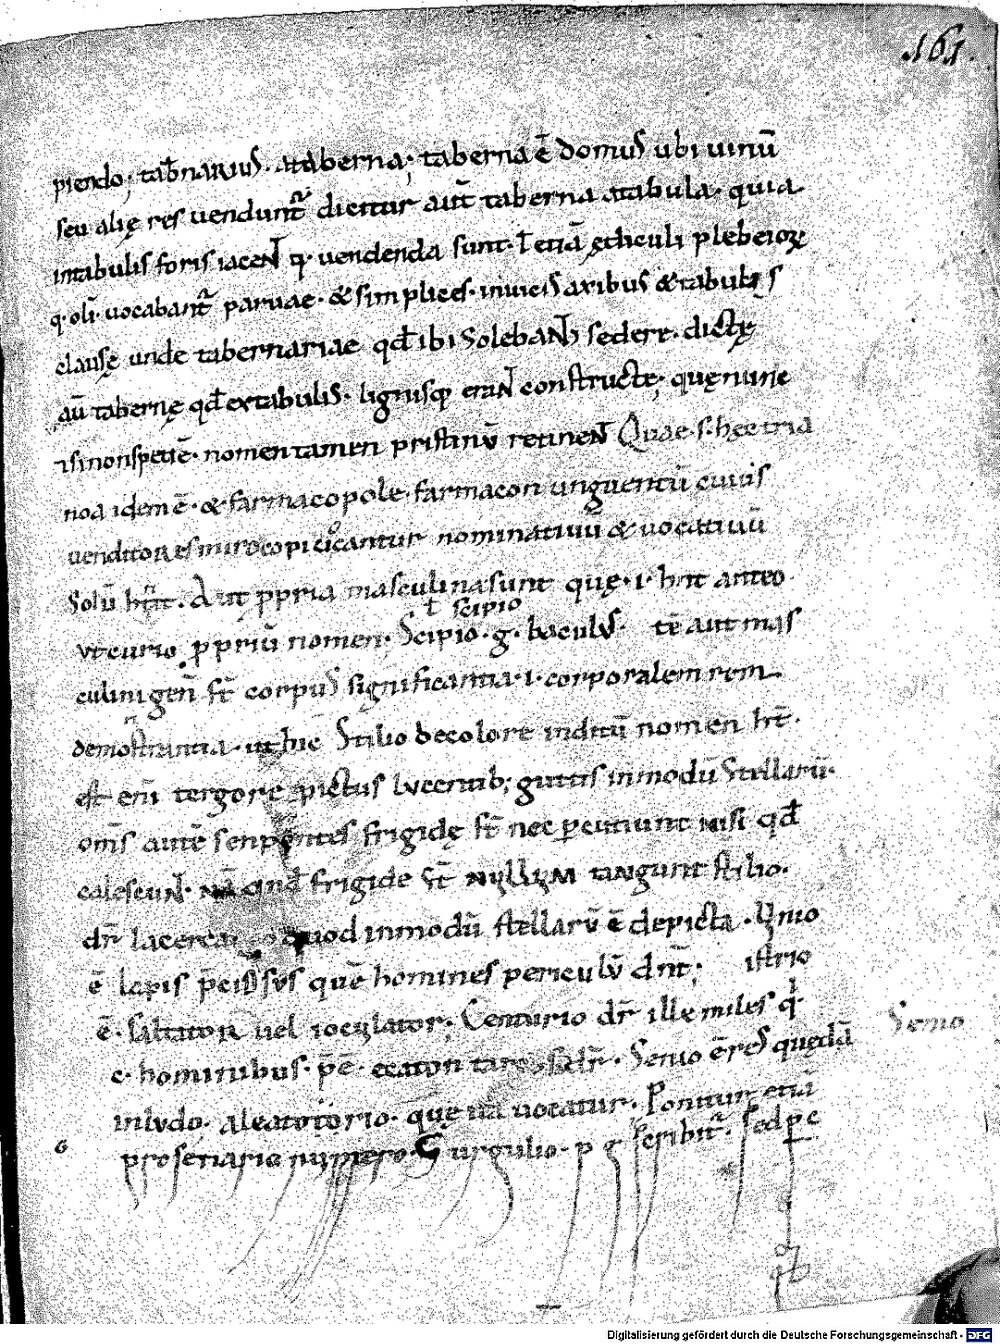 .161.
piendo; tab̄narius. ataberna; taberna ē domus ubi uinū
seu alię res uendunt̄ dicitur aūt taberna atabula. quia
intabulis foris iaceNt q̨ uendenda sunt. ł etiā ędiculi plebeioꝝ
q. oli. uocabant̄ paruae. & simplices. inuicis axibus & tabulis
clausę unde tabernariae qđ ibi solebaNt sedere. dictę
aū tabernę qđ extabulis. lignisq; eraNt constructe, quę nunc
&si non spetiē. nomen tamen pristinū retineNt Quae s. hec tria
idem ē. & farmacopole. farmacon unguentū cuius
uenditores miropici dicantur nominatiuū & uocatiuū
Solū hn̄t. Aut ppria masculina sunt quę .i. hnt anteo
ut curio ppriū nomen. Scipio. g. baculus. tē aut mas
ł scipio
culini geñ st̄ corpus significantia .i. corporalem rem
demonstrantia. ut hic Stilio de colore inditū nomen ht̄.
est enī tergore pictus lucentib; guttis inmodū stellarū.
om̄s autē serpentes frigidę st̄ nec percutiunt nisi qđ
calescuNt. frigide st̄ nullum tangunt stilio.
dr̄ lacerta quod inmodū stellarū ē depicta.
ē lapis quē homines periculū dn̄t; istrio
ē. saltator uel ioculator; Centurio dr̄ ille miles q
c. hominibus. p̄ē. ecaton Senio ē res quędā
Senio
inludo. aleatorio. quę ita uocatur. Ponitur etiā
pro senario numero. Gurgulio. p g scribit̄. sed p c
G
Digitalisierung gefördert durch die Deutsche Forschungsgemeinschaft - DFG